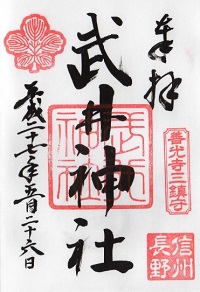 奉拝
善光寺三鎮守
信州
長野
武井神社
平成二十七年五月二十六日